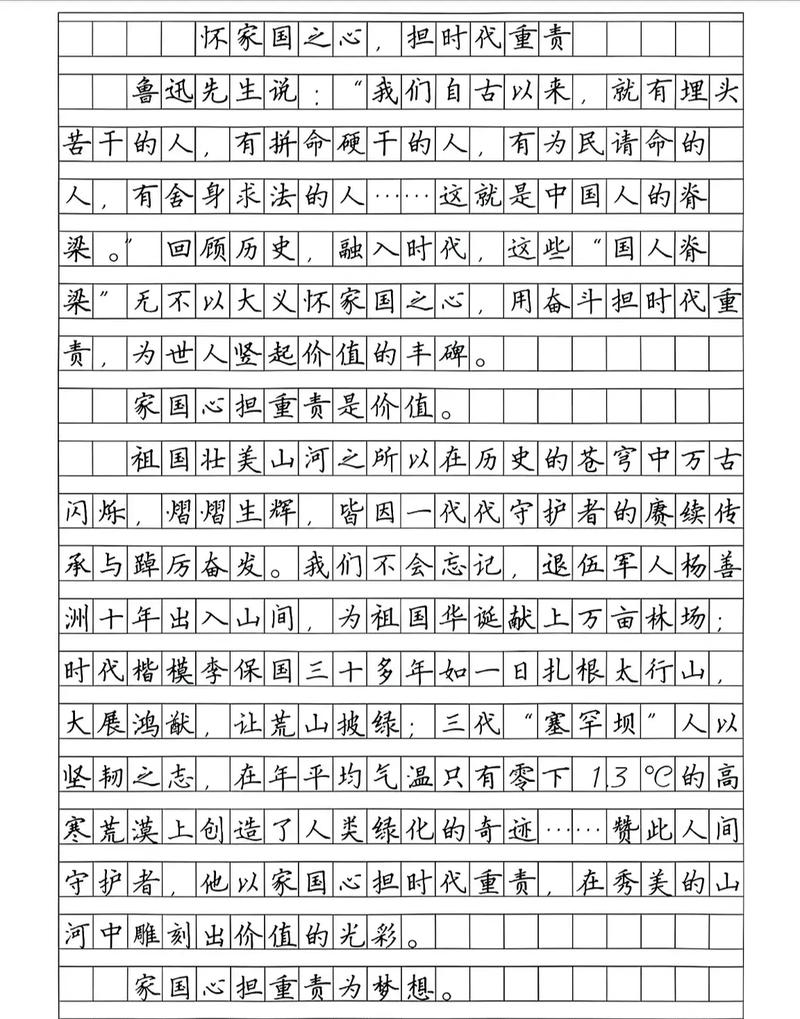 怀家国之心，担时代重责
鲁迅先生说：“我们自古以来，就有埋头
苦干的人，有拼命硬干的人，有为民请命的
人，有舍身求法的人……这就是中国人的脊
梁。”回顾历史，融入时代，这些“国人脊
梁”无不以大义怀家国之心，用奋斗担时代重
责，为世人竖起价值的丰碑。
家国心担重责是价值。
祖国壮美山河之所以在历史的苍穹中万古
闪烁，熠熠生辉，皆因一代代守护者的赓续传
承与踔厉奋发。我们不会忘记，退伍军人杨善
洲十年出入山间，为祖国华诞献上万亩林场；
时代楷模李保国三十多年如一日扎根太行山，
大展鸿猷，让荒山披绿；三代“塞罕坝”人以
坚韧之志，在年平均气温只有零下1.3℃的高
寒荒漠上创造了人类绿化的奇迹……赞此人间
守护者，他以家国心担时代重责，在秀美的山
河中雕刻出价值的光彩。
家国心担重责为梦想。